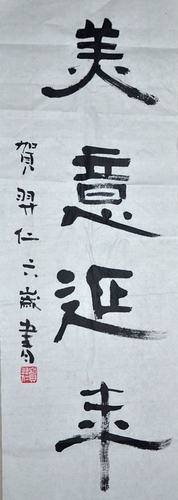 美意延年
賀羿仁六歲書